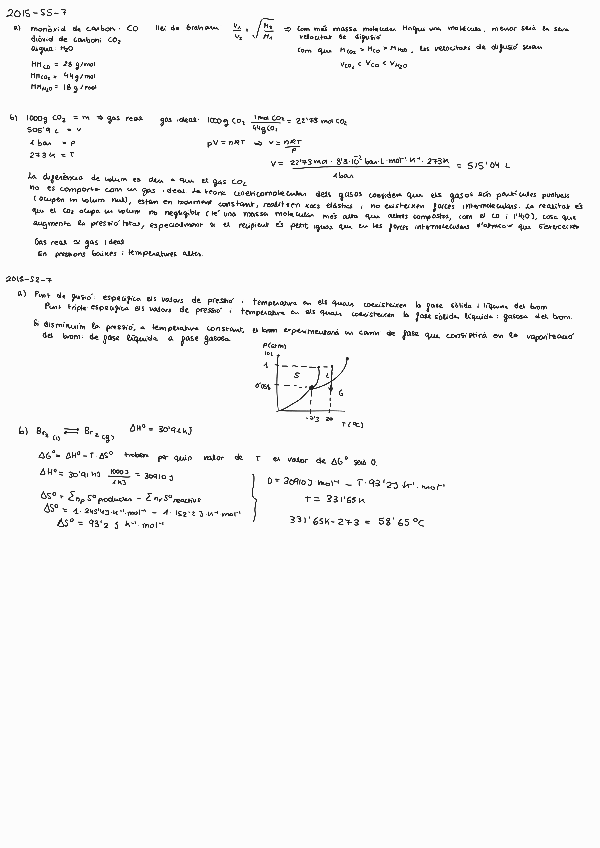 2015-S5-7
a) monòxid de carboni CO llei de Graham V₁/V₂ = √(M₂/M₁) ⇒ Com més massa molecular tingui una molècula, menor serà la seva velocitat de difusió
diòxid de carboni CO₂
aigua H₂O com que M CO₂ > M CO > M H₂O, les velocitats de difusió seran
MM CO = 28 g/mol V CO₂ < V CO < V H₂O
MM CO₂ = 44 g/mol
MM H₂O = 18 g/mol
b) 1000g CO₂ = m ⇒ gas real gas ideal: 1000g CO₂ 1mol CO₂/44g CO₂ = 22'73 mol CO₂
505'9 L = V
1 bar = P pV = nRT ⇒ V = nRT/P
273 K = T
V = 22'73 mol · 8'3·10⁻² bar·L·mol⁻¹·K⁻¹ · 273K / 1 bar = 515'04 L
La diferència de volum es deu a que el gas CO₂
no es comporta com un gas ideal. La teoria cineticomolecular dels gasos considera que els gasos són partícules puntuals
(ocupen un volum nul), estan en moviment constant, realitzen xocs elàstics i no existeixen forces intermoleculars. La realitat és
que el CO₂ ocupa un volum no negligible (té una massa molecular més alta que altres compostos, com el CO i l'H₂O), cosa que
augmenta la pressió total, especialment si el recipient és petit, igual que en les forces intermoleculars d'atracció que s'exerceixen
Gas real ≈ gas ideal
En pressions baixes i temperatures altes.
2015-S2-7
a) Punt de fusió: especifica els valors de pressió i temperatura en els quals coexisteixen la fase sòlida i líquida del brom
Punt triple especifica els valors de pressió i temperatura en els quals coexisteixen la fase sòlida, líquida i gasosa del brom.
Si disminuïm la pressió, a temperatura constant, el brom experimentarà un canvi de fase que consistirà en la vaporització
del brom: de fase líquida a fase gasosa.
P(atm)
1
S L
0'058
G
-7'3 20
T (ºC)
b) Br₂ (l) ⇌ Br₂ (g) ΔHº = 30'91 kJ
ΔGº = ΔHº - T·ΔSº trobem per quin valor de T el valor de ΔGº serà 0.
ΔHº = 30'91 kJ 1000J/1kJ = 30910 J
0 = 30910 J mol⁻¹ - T·93'2 J K⁻¹·mol⁻¹
ΔSº = Σnp Sº productes - Σnr Sº reactius
T = 331'65K
ΔSº = 1·245'4 J·K⁻¹·mol⁻¹ - 1·152'2 J·K⁻¹·mol⁻¹
ΔSº = 93'2 J K⁻¹·mol⁻¹
331'65K - 273 = 58'65 ºC